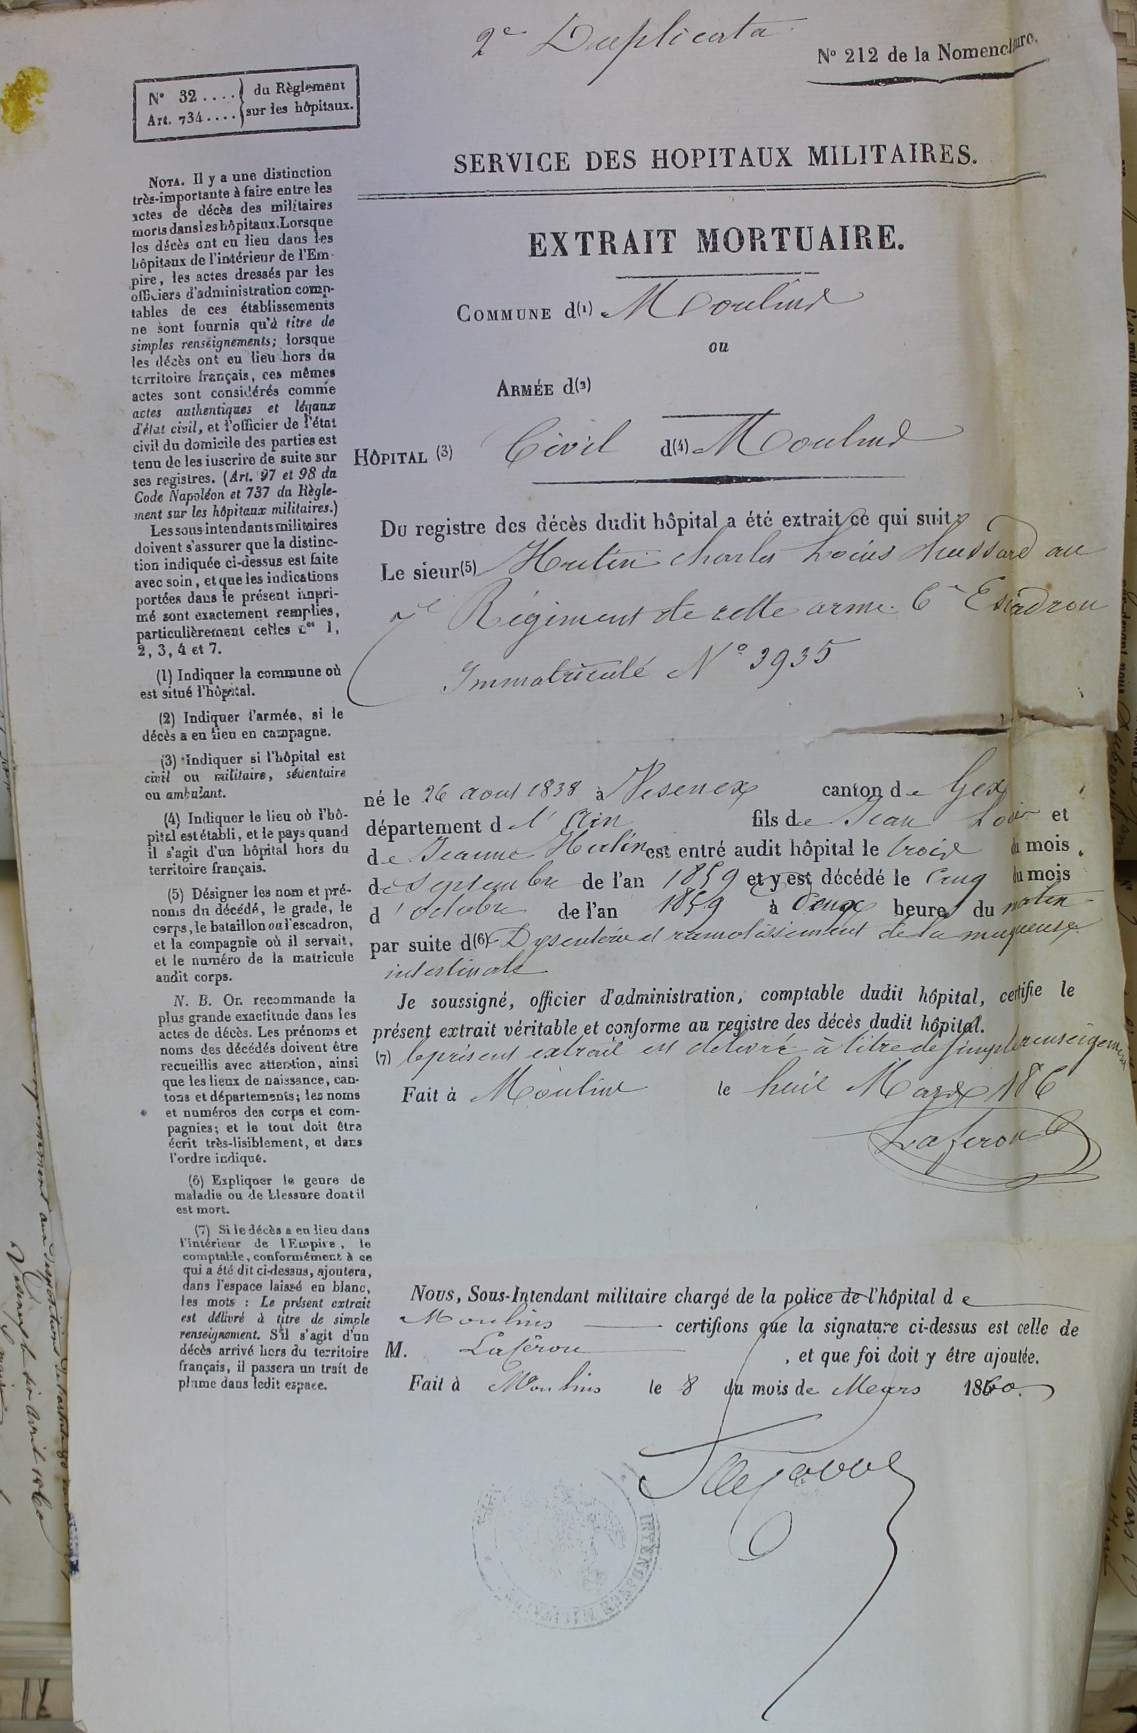 2e Duplicata
N° 212 de la Nomenclature.
N° 32 .... du Règlement
Art. 734 .... sur les hôpitaux.
SERVICE DES HOPITAUX MILITAIRES.
EXTRAIT MORTUAIRE.
COMMUNE d(1) Moulins
ou
ARMÉE d(2)
HÔPITAL (3) Civil d(4) Moulins
Du registre des décès dudit hôpital a été extrait ce qui suit :
Le sieur(5) Hutin Charles Louis hussard au
7e Régiment de cette arme. 6e Escadron
Immatriculé N° 3935
né le 26 aout 1838 à Vesenex canton de Gex
département d l'Ain fils de Jean Louis et
de Jeanne Hutin est entré audit hôpital le trois du mois
de septembre de l'an 1859 et y est décédé le cinq du mois
d'octobre de l'an 1859 à deux heures du matin
par suite d(6) Dysenterie et ramolissement de la muqueuse
intestinale
Je soussigné, officier d'administration, comptable dudit hôpital, certifie le
présent extrait véritable et conforme au registre des décès dudit hôpital.
(7) le présent extrait est délivré à titre de simple renseignement
Fait à Moulins le huit Mars 186
Laferon
Nous, Sous-Intendant militaire chargé de la police de l'hôpital de
Moulins certifions que la signature ci-dessus est celle de
M. Laféron, et que foi doit y être ajoutée.
Fait à Moulins le 8 du mois de Mars 1860.
INTENDANCE MILITAIRE
NOTA. Il y a une distinction
très-importante à faire entre les
actes de décès des militaires
morts dans les hôpitaux. Lorsque
les décès ont eu lieu dans les
hôpitaux de l'intérieur de l'Em-
pire, les actes dressés par les
officiers d'administration comp-
tables de ces établissements
ne sont fournis qu'à titre de
simples renseignements; lorsque
les décès ont eu lieu hors du
territoire français, ces mêmes
actes sont considérés comme
actes authentiques et légaux
d'état civil, et l'officier de l'état
civil du domicile des parties est
tenu de les inscrire de suite sur
ses registres. (Art. 97 et 98 du
Code Napoléon et 737 du Règle-
ment sur les hôpitaux militaires.)
Les sous-intendants militaires
doivent s'assurer que la distinc-
tion indiquée ci-dessus est faite
avec soin, et que les indications
portées dans le présent impri-
mé sont exactement remplies,
particulièrement celles nos 1,
2, 3, 4 et 7.
(1) Indiquer la commune où
est situé l'hôpital.
(2) Indiquer l'armée, si le
décès a eu lieu en campagne.
(3) Indiquer si l'hôpital est
civil ou militaire, sédentaire
ou ambulant.
(4) Indiquer le lieu où l'hô-
pital est établi, et le pays quand
il s'agit d'un hôpital hors du
territoire français.
(5) Désigner les nom et pré-
noms du décédé, le grade, le
corps, le bataillon ou l'escadron,
et la compagnie où il servait,
et le numéro de la matricule
audit corps.
N. B. On recommande la
plus grande exactitude dans les
actes de décès. Les prénoms et
noms des décédés doivent être
recueillis avec attention, ainsi
que les lieux de naissance, can-
tons et départements; les noms
et numéros des corps et com-
pagnies; et le tout doit être
écrit très-lisiblement, et dans
l'ordre indiqué.
(6) Expliquer le genre de
maladie ou de blessure dont il
est mort.
(7) Si le décès a eu lieu dans
l'intérieur de l'Empire, le
comptable, conformément à ce
qui a été dit ci-dessus, ajoutera,
dans l'espace laissé en blanc,
les mots : Le présent extrait
est délivré à titre de simple
renseignement. S'il s'agit d'un
décès arrivé hors du territoire
français, il passera un trait de
plume dans ledit espace.